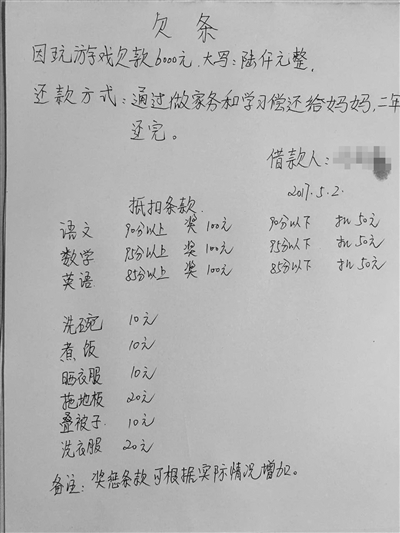 欠条
因玩游戏欠款6000元.大写:陆仟元整,
还款方式:通过做家务和学习偿还给妈妈,二年
还完。
借款人:
2017.5.2.
抵扣条款.
语文 90分以上 奖100元 90分以下 扣50元
数学 95分以上 奖100元 95分以下 扣50元
英语 85分以上 奖100元 85分以下 扣50元
洗碗 10元
煮饭 10元
晒衣服 10元
拖地板 20元
叠被子 10元
洗衣服 20元
备注:奖惩条款可根据实际情况增加。